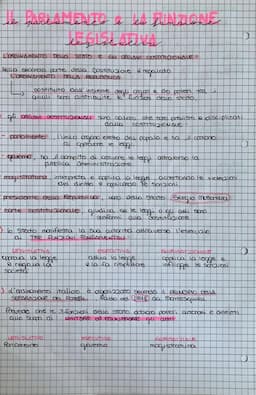 IL PARLAMENTO e LA FUNZIONE
LEGISLATIVA
L'ORDINAMENTO DELLO STATO E GLI ORGANI COSTITUZIONALI
Nella seconda parte della Costituzione è regolato
L'ORDINAMENTO DELLA REPUBBLICA
costituito dall'insieme degli organi e dei poteri tra i
quali sono distribuite le funzioni dello stato.
gli ORGANI COSTITUZIONALI sono coloro che sono previsti e disciplinati
dalla COSTITUZIONE
parlamento: l'unico organo eletto dal popolo e ha il compito
di approvare le leggi
governo, ha il compito di attuare le leggi attraverso la
pubblica amministrazione
magistratura, interpreta e applica la legge, accertando le violazioni
del diritto e applicando le sanzioni
presidente della Repubblica, capo dello stato (Sergio Mattarella)
corte costituzionale, giudica se le leggi e gli atti sono
conformi alla costituzione
lo stato manifesta la sua autorità attraverso l'esercizio
di TRE FUNZIONI FONDAMENTALI
LEGISLATIVA ESECUTIVA GIURISDIZIONALE
approva la legge attua la legge applica la legge e
e regola la e la fa rispettare infligge le sanzioni
società
l'ordinamento italiano è organizzato secondo il PRINCIPIO DELLA
SEPARAZIONE DEI POTERI
prevede che le 3 funzioni dello stato devono
LEGISLATIVO ESECUTIVO GIUDIZIARIO
Parlamento governo magistratura